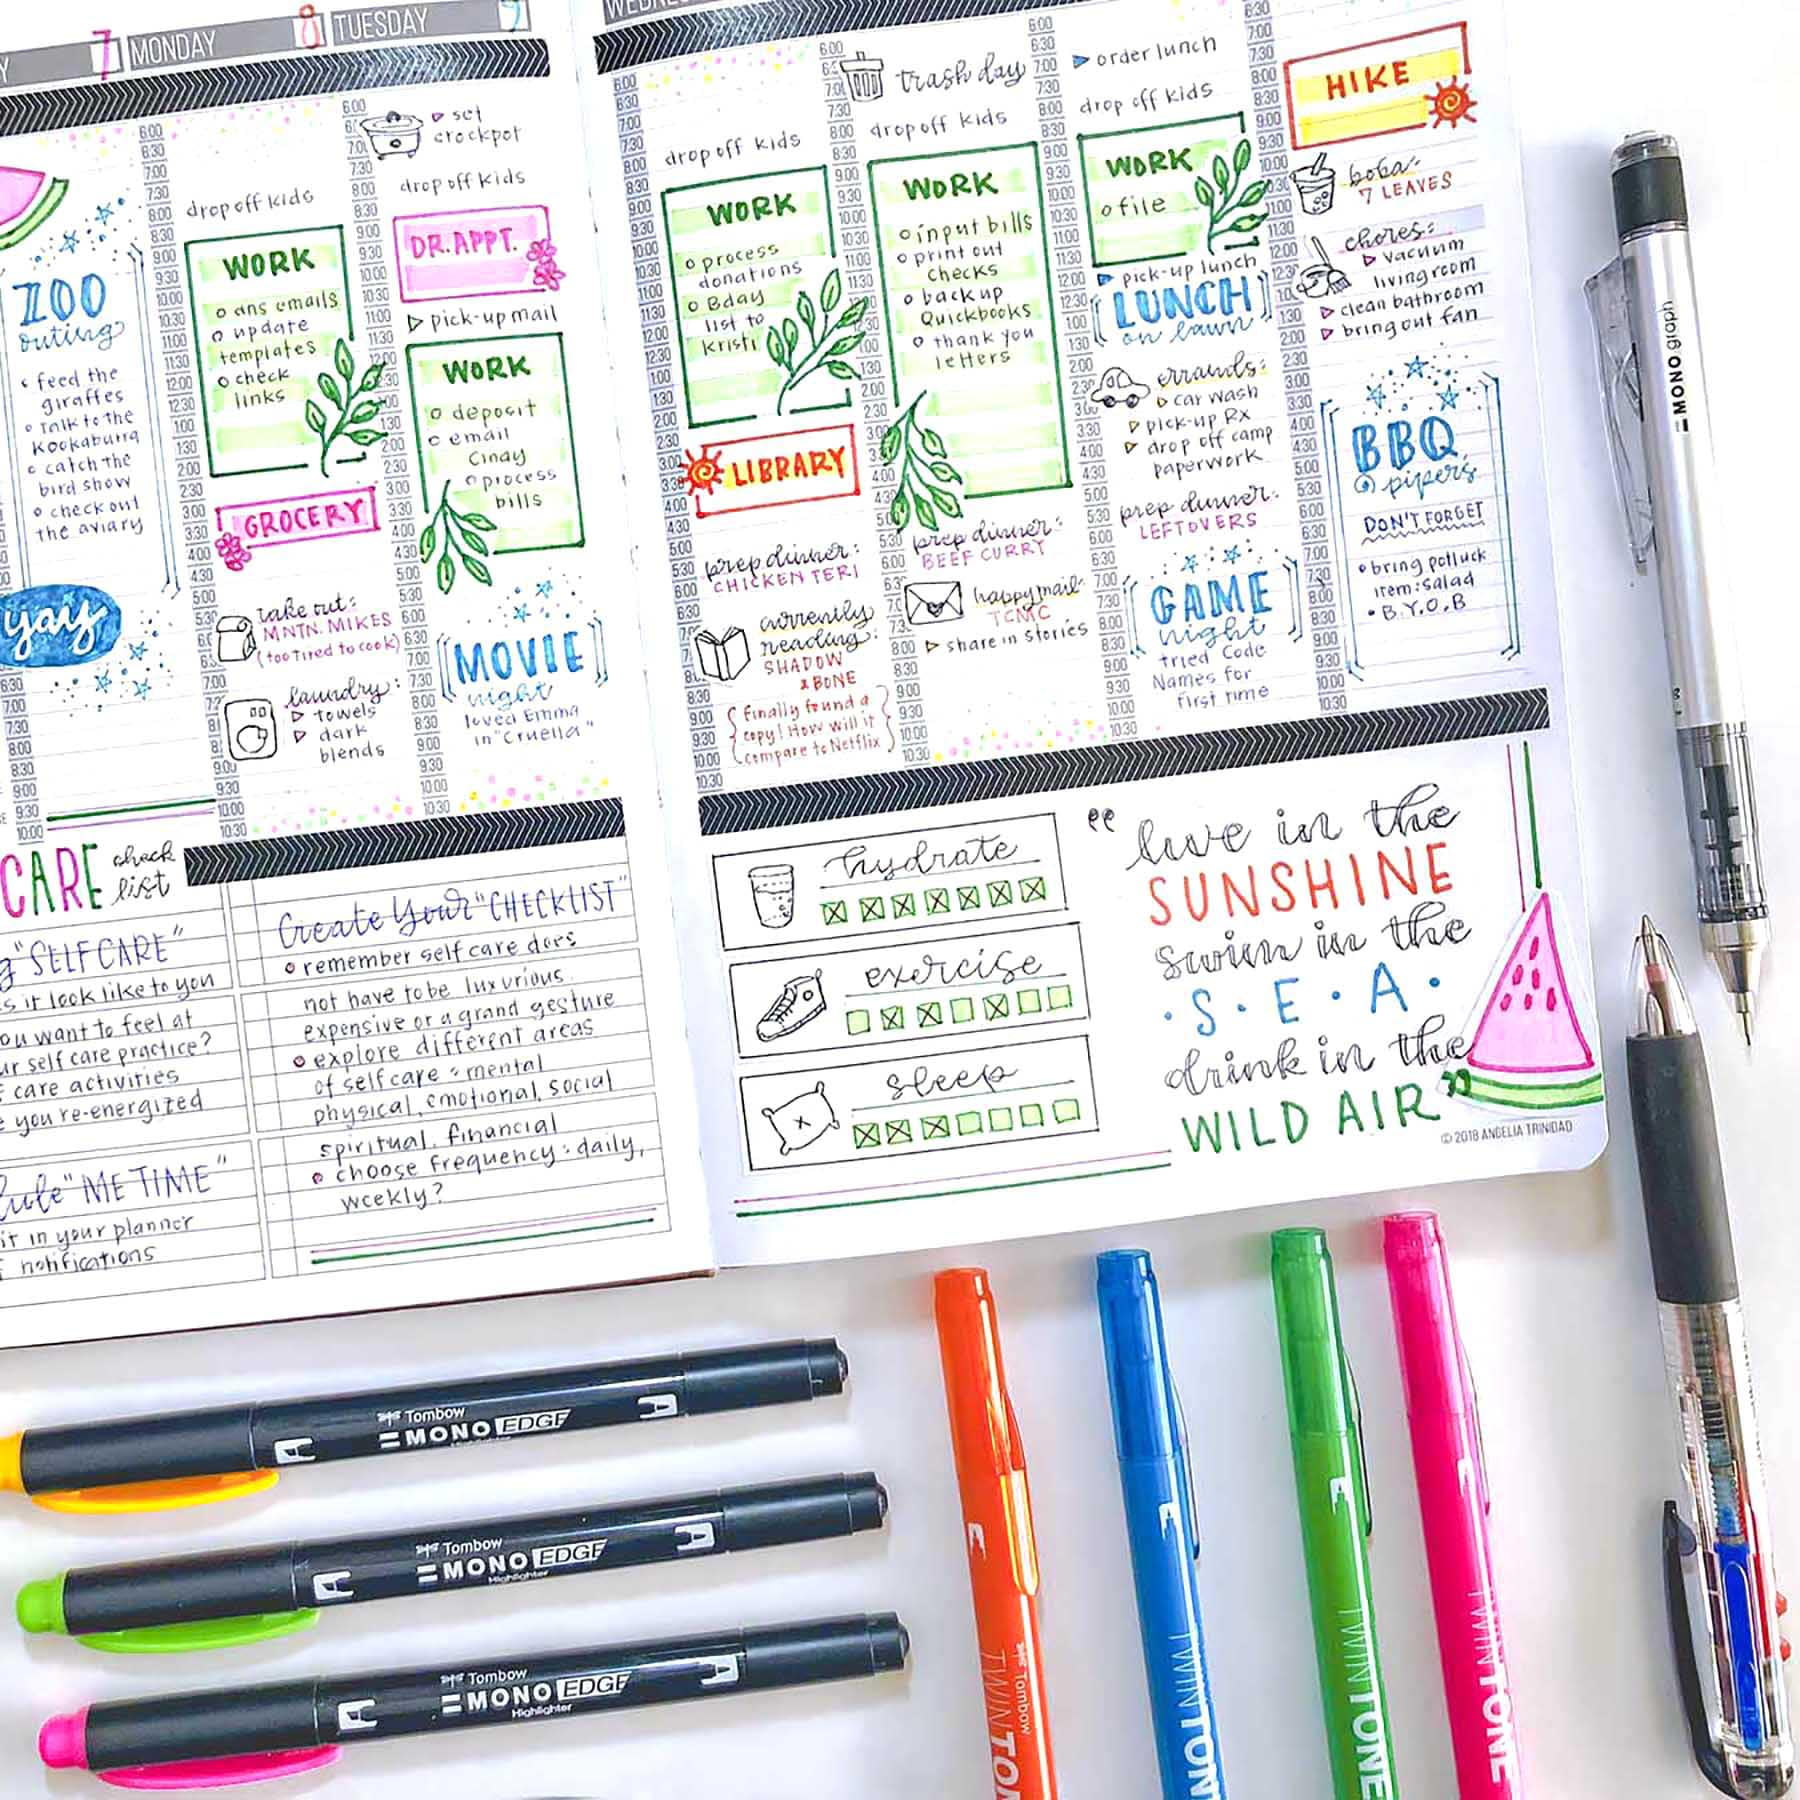 7
MONDAY
8
TUESDAY
9
ZOO
outing
feed the
giraffes
talk to the
kookaburra
catch the
bird show
check out
the aviary
yay
drop off kids
WORK
ans emails
update
templates
check
links
GROCERY
take out:
MNTN. MIKES
(too tired to cook)
laundry:
towels
dark
blends
set
crockpot
drop off kids
DR. APPT.
pick-up mail
WORK
deposit
email
Cindy
process
bills
MOVIE
night
loved Emma
in "Cruella"
drop off kids
WORK
process
donations
Bday
list to
Kristi
LIBRARY
prep dinner:
CHICKEN TERI
currently
reading:
SHADOW
& BONE
finally found a
copy! How will it
compare to Netflix
trash day
drop off kids
WORK
input bills
print out
checks
backup
Quickbooks
thank you
letters
prep dinner:
BEEF CURRY
happy mail:
TCMC
share in stories
order lunch
drop off kids
WORK
file
pick-up lunch
LUNCH
on lawn
errands:
car wash
pick-up Rx
drop off camp
paperwork
prep dinner:
LEFTOVERS
GAME
night
tried Code
Names for
first time
HIKE
boba:
7 LEAVES
chores:
vacuum
living room
clean bathroom
bring out fan
BBQ
@ pipers
DON'T FORGET
bring potluck
item: salad
B.Y.O.B
CARE check
list
"SELFCARE"
it look like to you
you want to feel at
self care practice?
care activities
you re-energized
"ME TIME"
it in your planner
notifications
Create Your "CHECKLIST"
remember self care does
not have to be luxurious
expensive or a grand gesture
explore different areas
of selfcare: mental
physical, emotional, social
spiritual. financial
choose frequency: daily,
weekly?
hydrate
exercise
sleep
"live in the
SUNSHINE
swim in the
·S·E·A·
drink in the
WILD AIR"
© 2018 ANGELIA TRINIDAD
MONO graph
Tombow
MONO EDGE
Tombow
MONO EDGE
Highlighter
Tombow
MONO EDGE
Highlighter
Tombow
TWINTON
TWINTONE
TWINTONE
TWINTONE